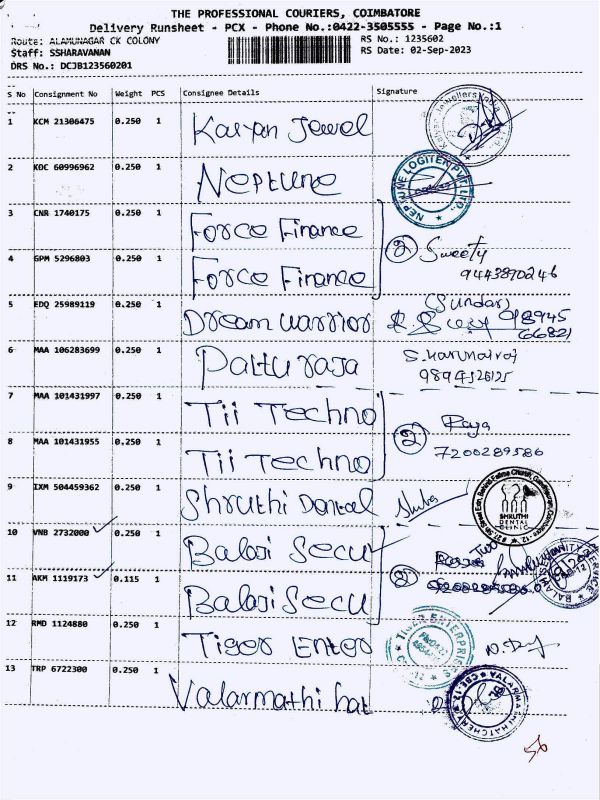 THE PROFESSIONAL COURIERS, COIMBATORE
Delivery Runsheet - PCX - Phone No.:0422-3505555 - Page No.:1
Route: ALAMUNAGAR CK COLONY
RS No.: 1235602
Staff: SSHARAVANAN
RS Date: 02-Sep-2023
DRS No.: DCJB123560201
S No Consignment No Weight PCS Consignee Details Signature
1 KCM 21306475 0.250 1 Kalyan Jewel
2 KOC 60996962 0.250 1 Neptune
NEPTUNE LOGITEK PVT. LTD.
3 CNR 1740175 0.250 1 Force Finance
4 GPM 5296803 0.250 1 Force Finance
2 Sweety
9443890246
5 EDQ 25989119 0.250 1 Dream warrior
(Sundar)
6 MAA 106283699 0.250 1 Pattu raja
7 MAA 101431997 0.250 1 Tii Techno
8 MAA 101431955 0.250 1 Tii Techno
2 Raja
7200289586
9 IXM 504459362 0.250 1 Shruthi Dental
SHRUTHI
DENTAL
CLINIC
10 VNB 2732000 0.250 1 Balaji Secu
11 AKM 1119173 0.115 1 Balaji Secu
2
12 RMD 1124880 0.250 1 Tiger Enter
TIGER ENTERPRISES
13 TRP 6722300 0.250 1 Valarmathi hat
VALARMATHI HATCHERY